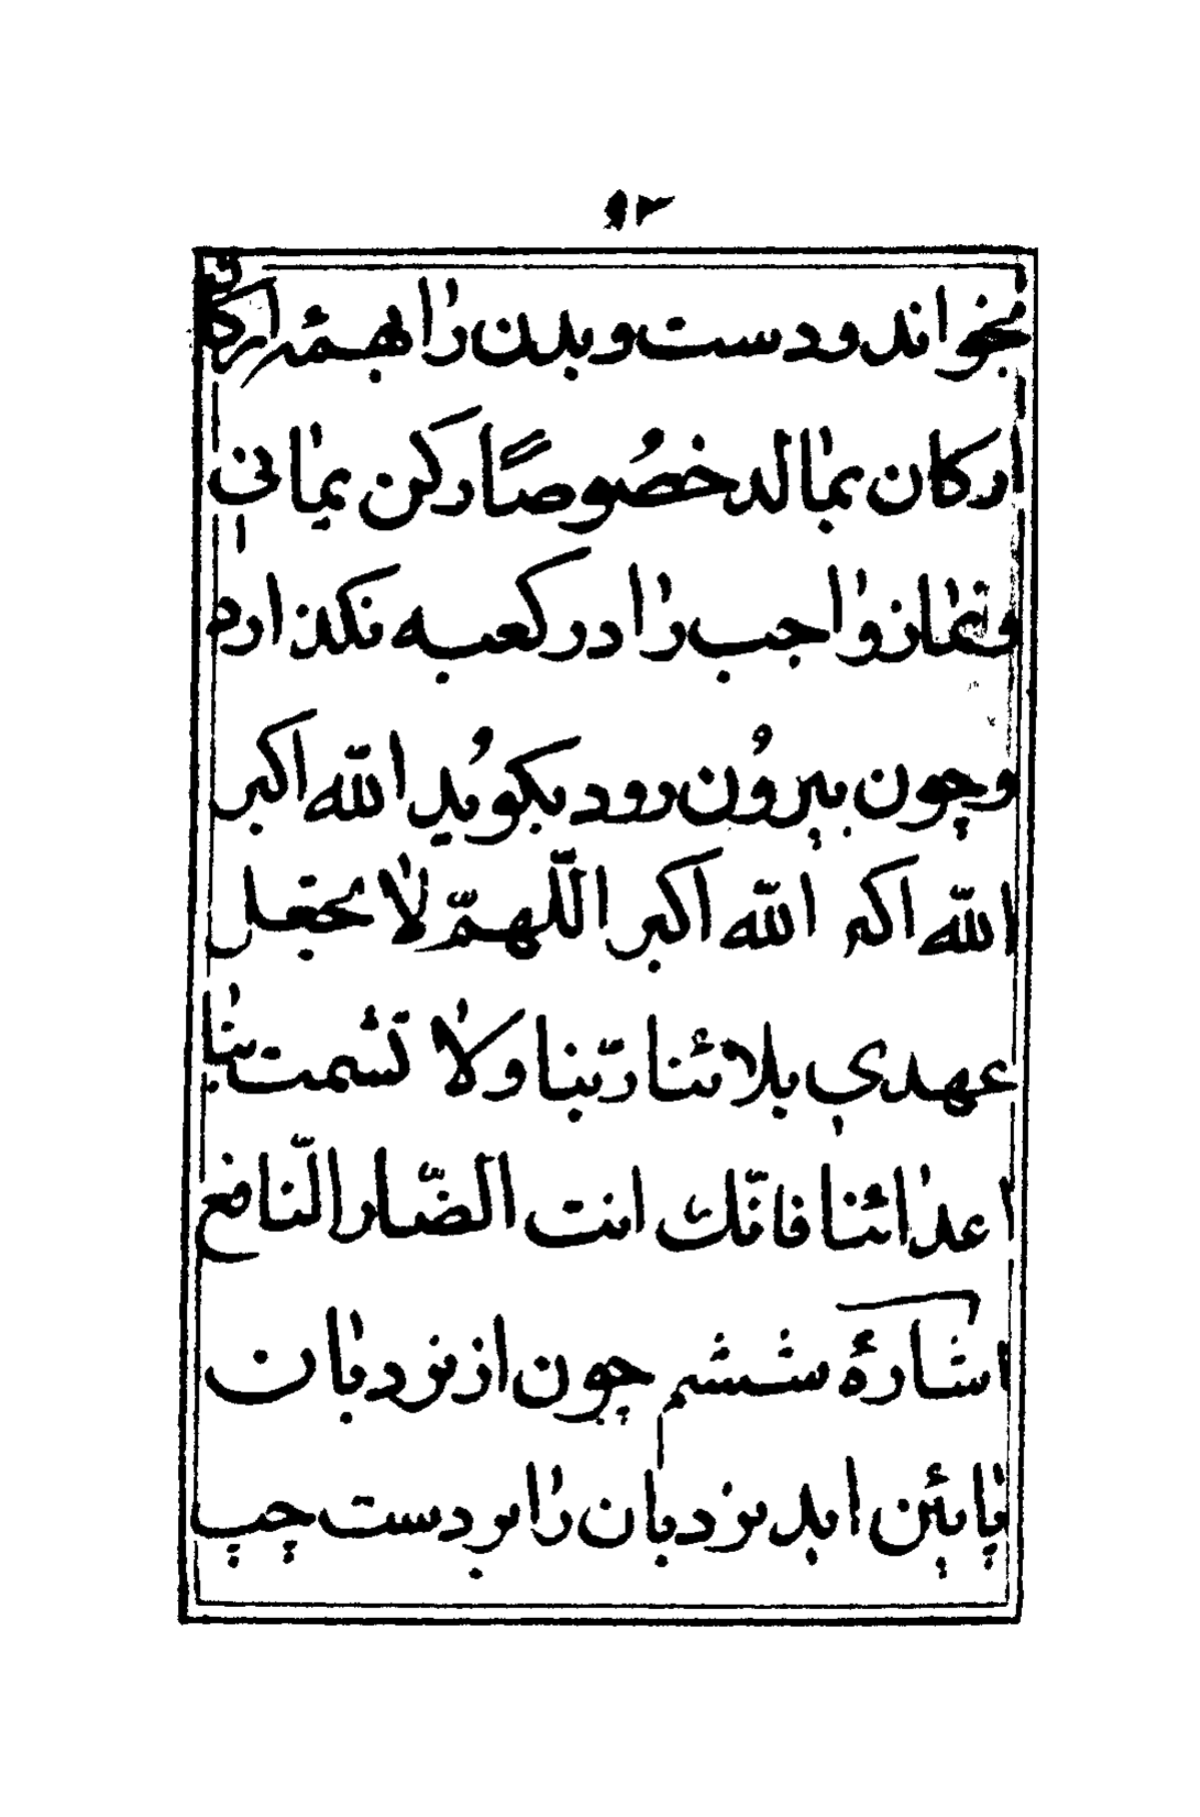 ٩٢
بخواند و دست و بدن را بهمۀ
ارکان بمالد خصُوصًا رکن یمانی
و نماز واجب را در کعبه نکذارد
و چون بیرُون رود بکویُد الله اکبر
الله اکبر الله اکبر اللّهمّ لا تجعل
عهدی بلائنا ربّنا ولا تشمت بنا
اعدائنا فانّك انت الضّار النّافع
اشارۀ ششم چون از نردبان
پایٔن اید نردبان را بر دست چپ